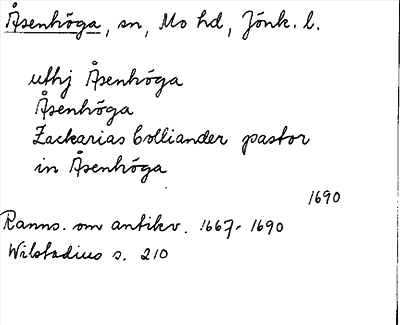 Åsenhöga, sn, Mo hd, Jönk. l.
uthj Åsenhöga
Åsenhöga
Zackarias Colliander pastor
in Åsenhöga
1690
Ranns. om antikv. 1667-1690
Wilstadius s. 210